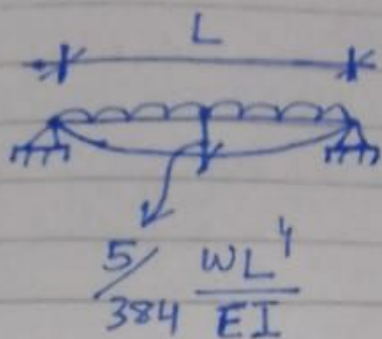 L
5/384 WL⁴/EI